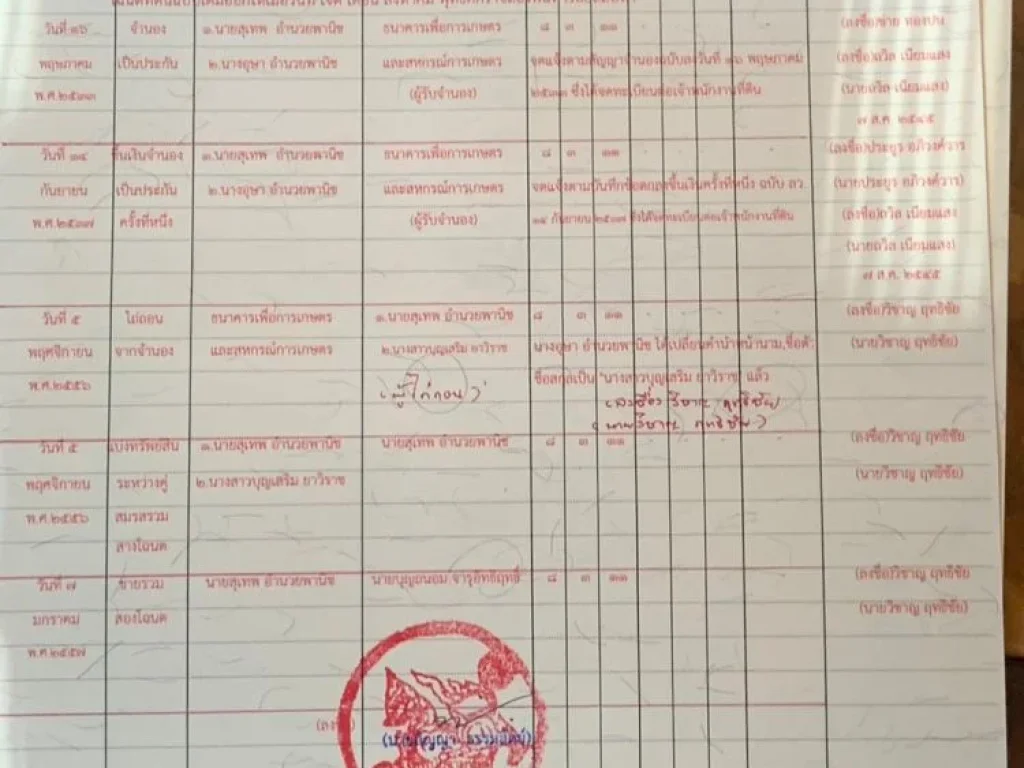 วันที่ ๑๖ จำนอง ๑.นายสุเทพ อำนวยพานิช ธนาคารเพื่อการเกษตร ๘ ๓ ๑๑ (ลงชื่อ)
พฤษภาคม เป็นประกัน ๒.นางอุษา อำนวยพานิช และสหกรณ์การเกษตร จดแจ้งตามสัญญาจำนองฉบับลงวันที่ ๑๖ พฤษภาคม (ลงชื่อ)ถวิล เนียมแสง
พ.ศ.๒๕๓๓ (ผู้รับจำนอง) ๒๕๓๓ ซึ่งได้จดทะเบียนต่อเจ้าพนักงานที่ดิน (นายถวิล เนียมแสง)
๗ ส.ค. ๒๕๔๕
วันที่ ๑๔ ขึ้นเงินจำนอง ๑.นายสุเทพ อำนวยพานิช ธนาคารเพื่อการเกษตร ๘ ๓ ๑๑ (ลงชื่อ)ประยูร อภิวงค์วาร
กันยายน เป็นประกัน ๒.นางอุษา อำนวยพานิช และสหกรณ์การเกษตร จดแจ้งตามบันทึกข้อตกลงขึ้นเงินครั้งที่หนึ่ง ฉบับ ลว. (นายประยูร อภิวงค์วาร)
พ.ศ.๒๕๓๗ ครั้งที่หนึ่ง (ผู้รับจำนอง) ๑๔ กันยายน ๒๕๓๗ ซึ่งได้จดทะเบียนต่อเจ้าพนักงานที่ดิน (ลงชื่อ)ถวิล เนียมแสง
(นายถวิล เนียมแสง)
๗ ส.ค. ๒๕๔๕
วันที่ ๕ ไถ่ถอน ธนาคารเพื่อการเกษตร ๑.นายสุเทพ อำนวยพานิช ๘ ๓ ๑๑ (ลงชื่อ)วิชาญ ฤทธิชัย
พฤศจิกายน จากจำนอง และสหกรณ์การเกษตร ๒.นางสาวบุญเสริม ยาวิราช นางอุษา อำนวยพานิช ได้เปลี่ยนคำนำหน้านาม,ชื่อตัว (นายวิชาญ ฤทธิชัย)
พ.ศ.๒๕๕๖ (ผู้ไถ่ถอน) ชื่อสกุลเป็น "นางสาวบุญเสริม ยาวิราช" แล้ว
(ลงชื่อ) วิชาญ ฤทธิชัย
(นายวิชาญ ฤทธิชัย)
วันที่ ๕ แบ่งทรัพย์สิน ๑.นายสุเทพ อำนวยพานิช นายสุเทพ อำนวยพานิช ๘ ๓ ๑๑ (ลงชื่อ)วิชาญ ฤทธิชัย
พฤศจิกายน ระหว่างคู่ ๒.นางสาวบุญเสริม ยาวิราช (นายวิชาญ ฤทธิชัย)
พ.ศ.๒๕๕๖ สมรสรวม
สองโฉนด
วันที่ ๗ ขายรวม นายสุเทพ อำนวยพานิช นายบุญถนอม จารุอิทธิฤทธิ์ ๘ ๓ ๑๑ (ลงชื่อ)วิชาญ ฤทธิชัย
มกราคม สองโฉนด (นายวิชาญ ฤทธิชัย)
พ.ศ.๒๕๕๗